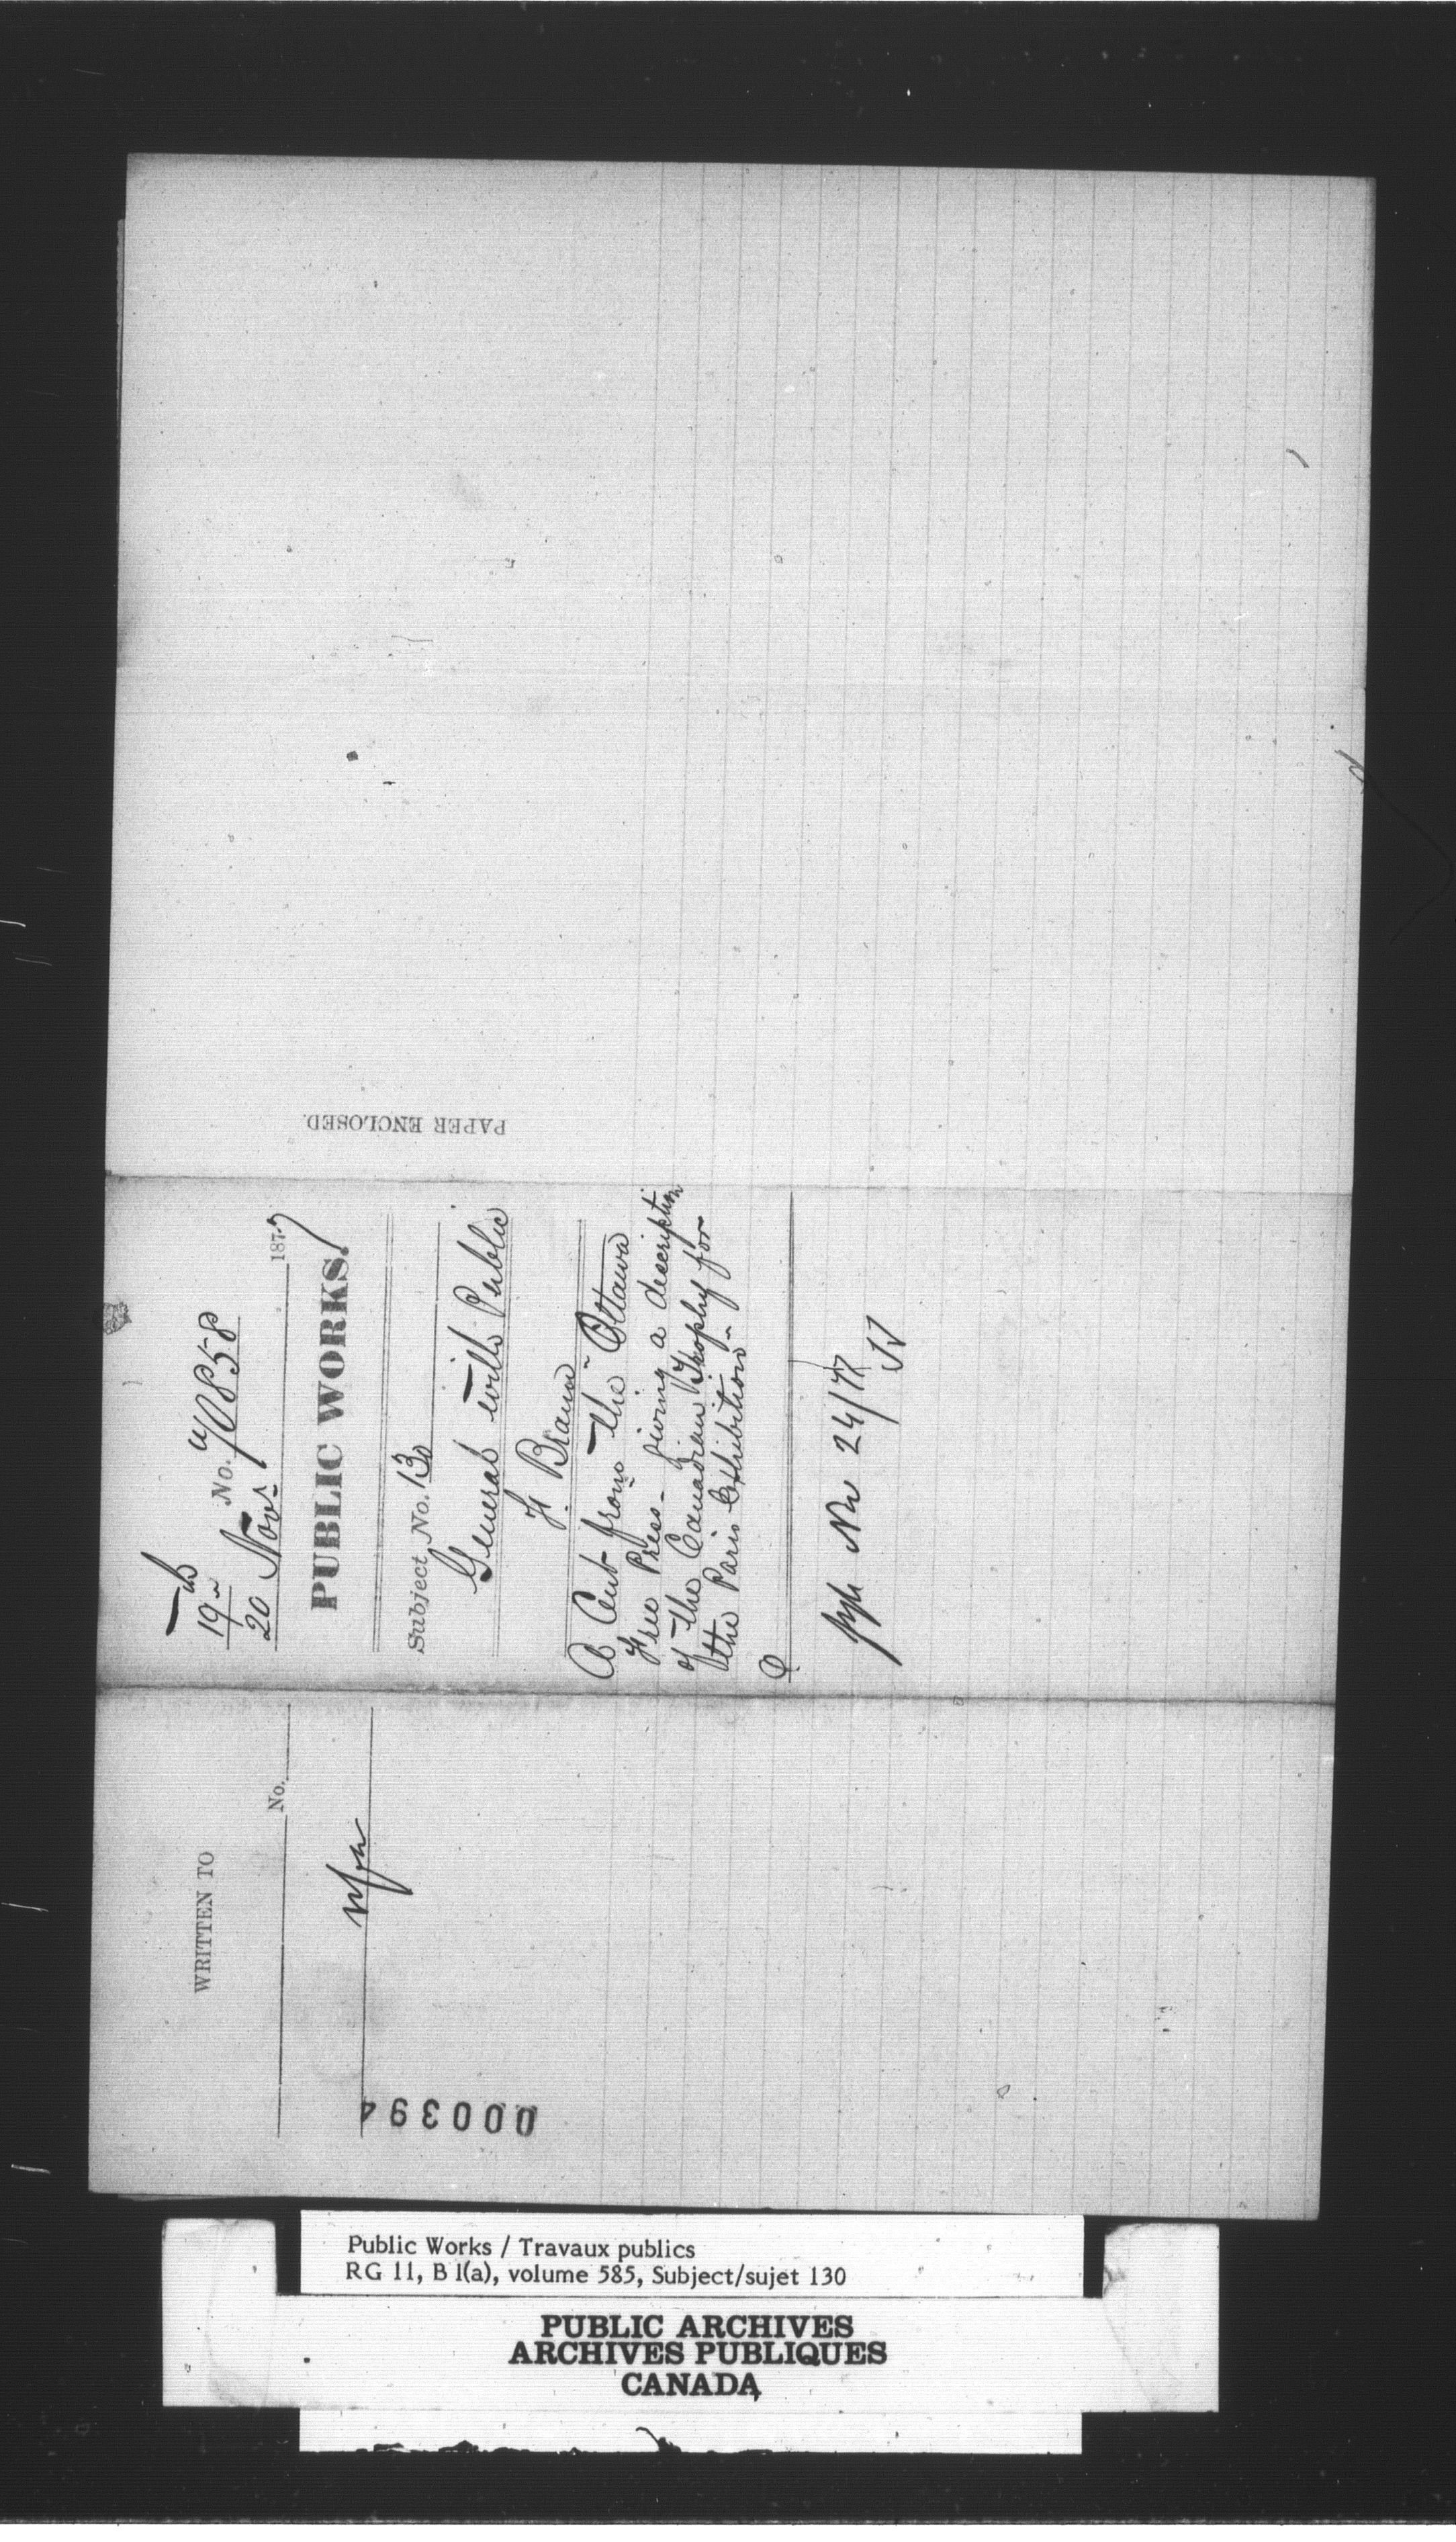 PAPER ENCLOSED.
19
No. 70858
20 Nov. 1877
PUBLIC WORKS.
Subject, No. 130
General with Public
F. Braun
A Cut from the Ottawa
Free Press - giving a description
of the Canadian Trophy for
the Paris Exhibition -
Nov 24/77
WRITTEN TO
No.
000394
Public Works / Travaux publics
RG 11, B 1(a), volume 585, Subject/sujet 130
PUBLIC ARCHIVES
ARCHIVES PUBLIQUES
CANADA